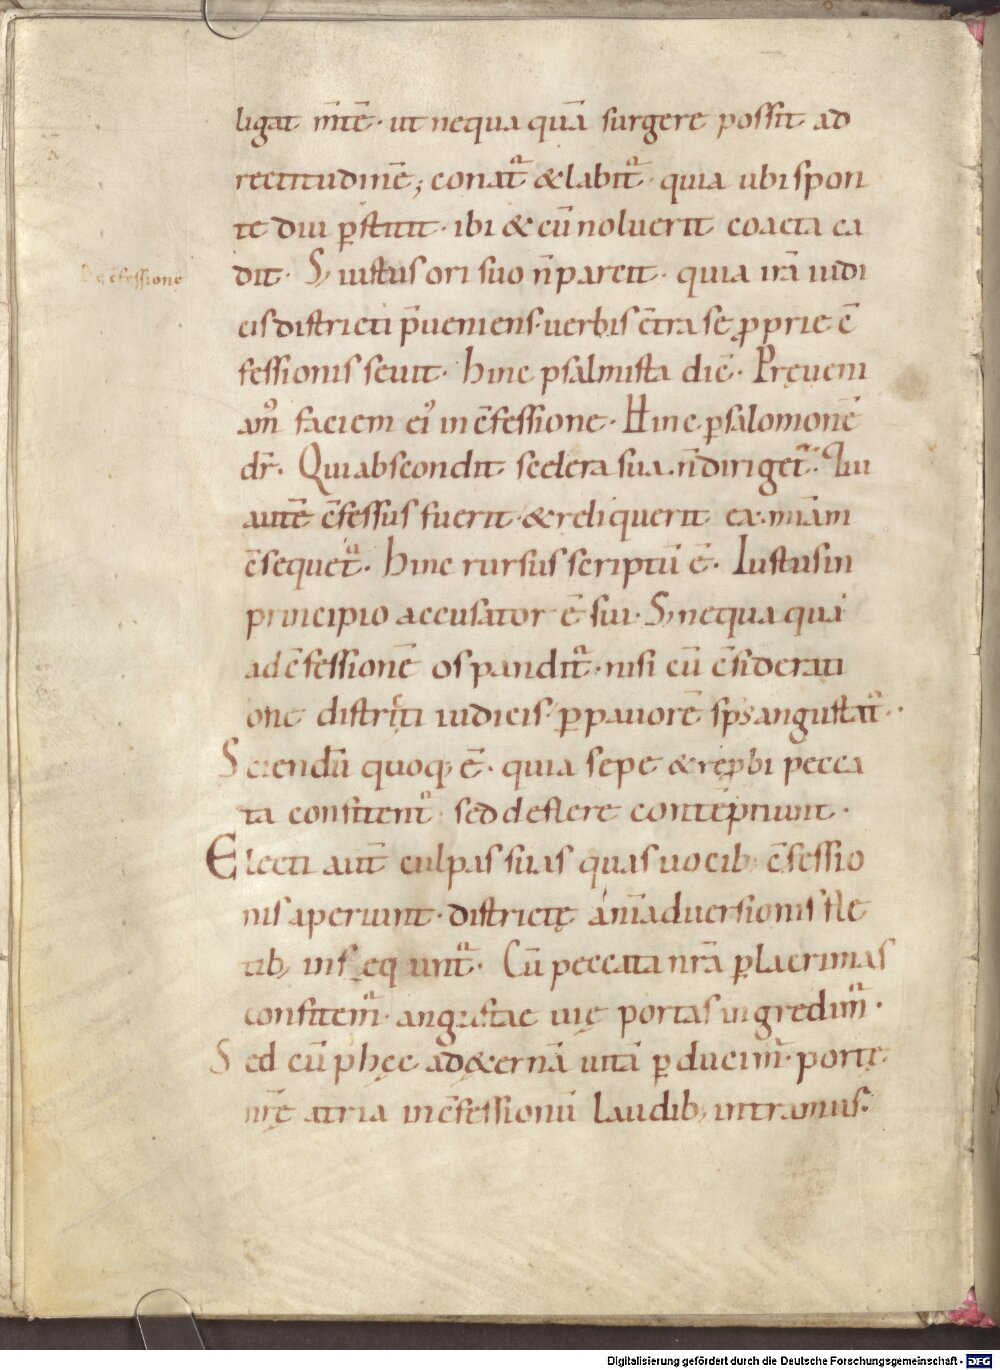 ligat m̄tē· ut nequa quā surgere possit ad
rectitudinē; conat᷑ &labit᷑· quia ubi spon
te diu ꝑstitit· ibi & cū noluerit coacta ca
dit· S; iustus ori suo n̄ parcit· quia irā iudi
De c̄fessione
cis districti p̄ueniens· uerbis c̄tra se ꝓprie c̄
fessionis seuit· hinc psalmista dic̄· Pręueni
am᷒ faciem ei᷒ in c̄fessione· Hinc ꝑ salomonē
dr̄· Qui abscondit scelera sua· n̄ diriget᷑· Qui
autē c̄fessus fuerit· & reliquerit ea· mīam
c̄sequet᷑· hinc rursus scriptū ē· Iustus in
principio accusator ē sui· S; nequa quā
ad c̄fessionē os pandit᷑· nisi cū c̄siderati
one districti iudicis· ꝑ pauorē sp̄s angustat᷑·
Sciendū quoq; ē· quia sepe & rep̱bi pecca
ta confitent᷑· sed deflere contēpnunt·
Electi aut̄ culpas suas quas uocib; c̄fessio
nis aperiunt· districtę ānīaduersionis fle
tib; insequunt᷑· Cū peccata nr̄a ꝑ lacrimas
confitem᷑· angustae uię portas ingredim᷑·
Sed cū p̱ hęc ad ę&ernā uitā ꝑducim᷑· portę
nr̄ę atria in c̄fessionū laudib; intramus·
Digitalisierung gefördert durch die Deutsche Forschungsgemeinschaft · DFG